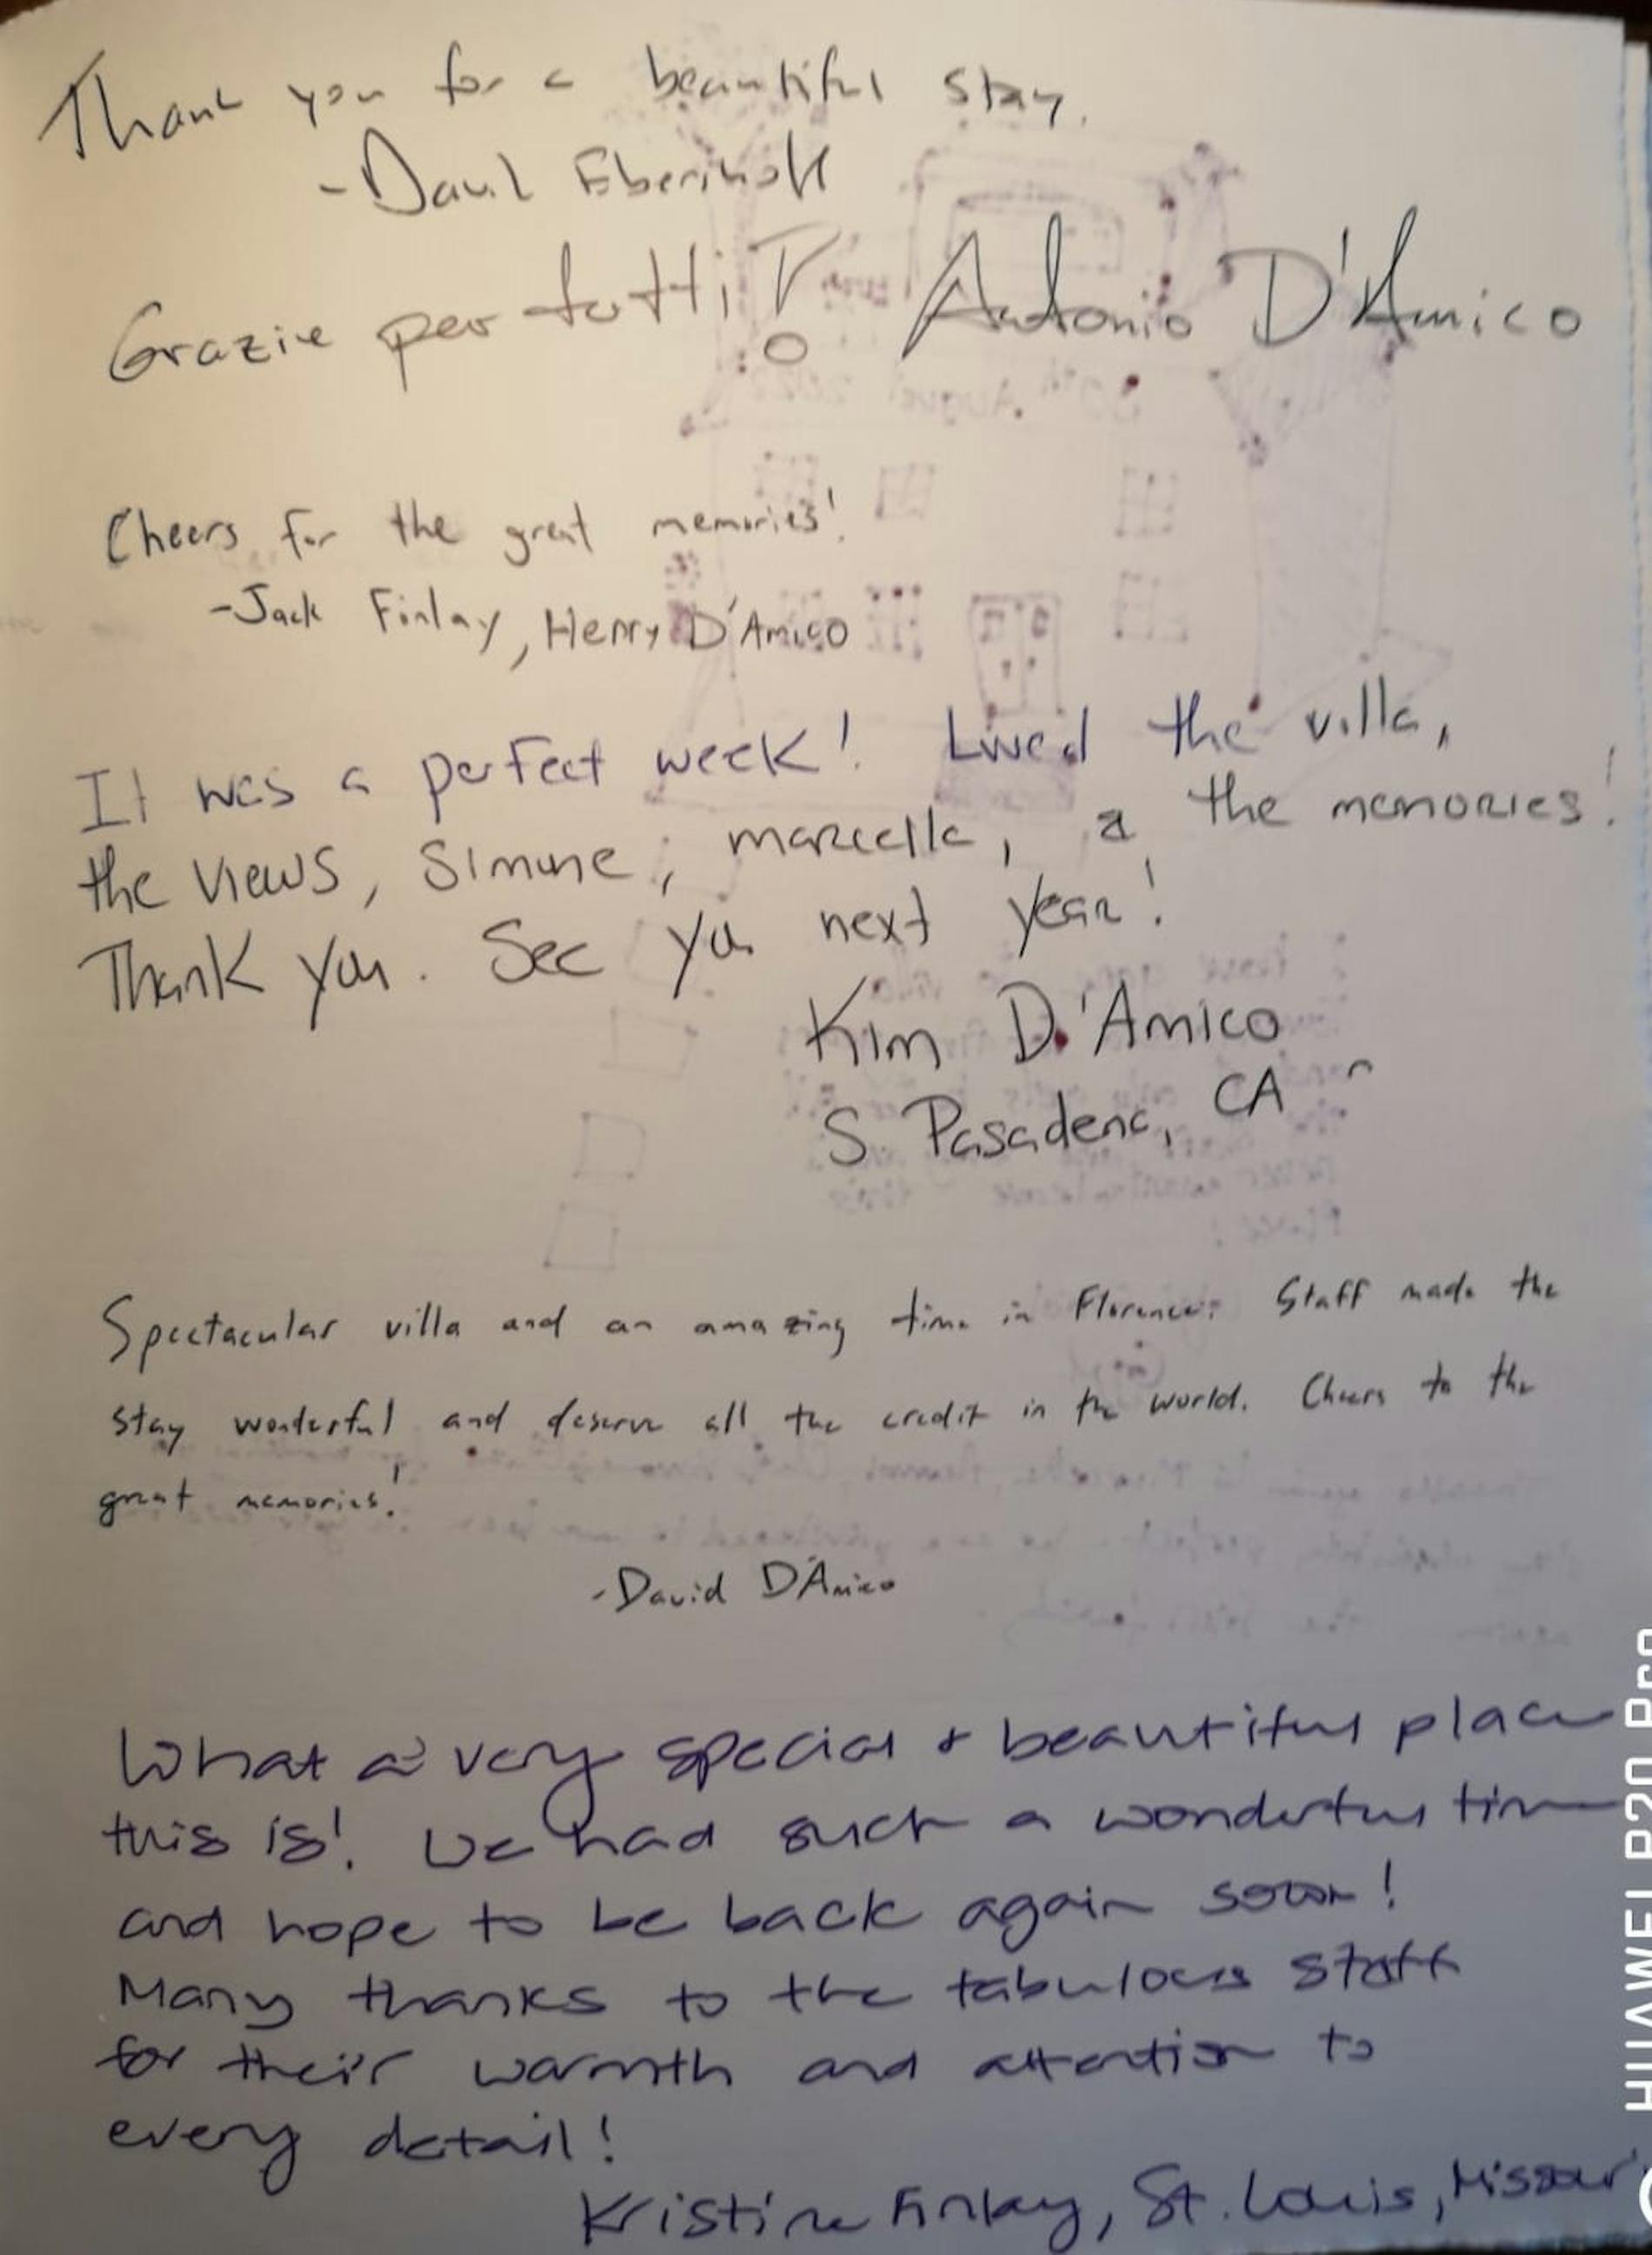 Thank you for a beautiful stay.
Grazie per tutti! Antonio D'Amico
Cheers for the great memories!
-Jack Finlay, Henry D'Amico
It was a perfect week! Loved the villa,
the views, Simone, Marcella, & the memories!
Thank you. See you next year!
Kim D'Amico
S. Pasadena, CA
Spectacular villa and an amazing time in Florence. Staff made the
stay wonderful and deserve all the credit in the world. Cheers to the
great memories!
-David D'Amico
What a very special + beautiful place
this is! We had such a wonderful time
and hope to be back again soon!
Many thanks to the fabulous staff
for their warmth and attention to
every detail!
Kristine Finlay, St. Louis, Missouri
HUAWEI P20 Pro